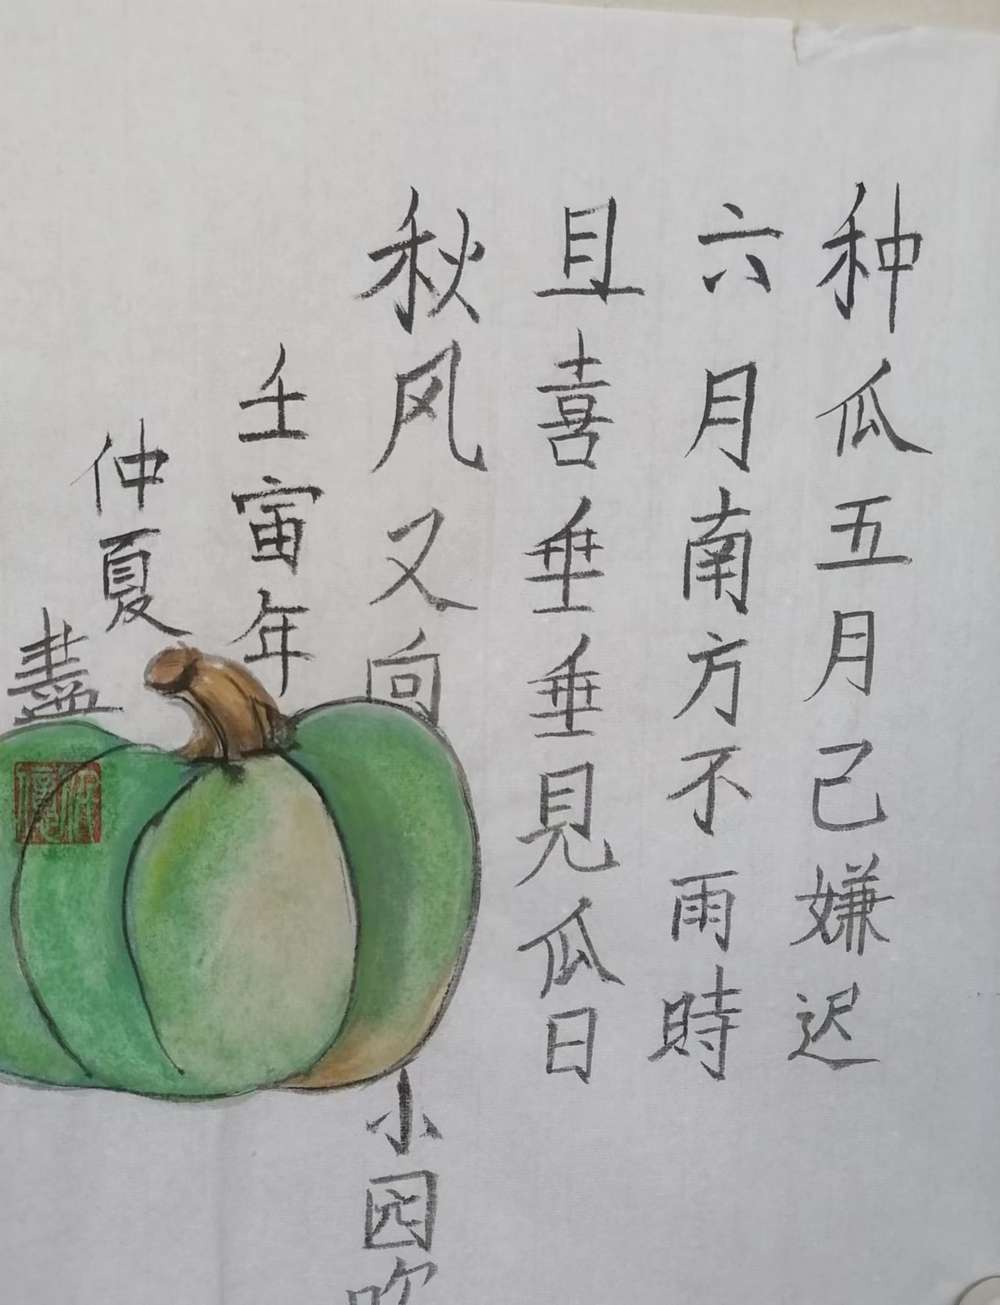 种瓜五月己嫌迟
六月南方不雨時
且喜垂垂見瓜日
秋风又向小园吹
壬寅年
仲夏
畫